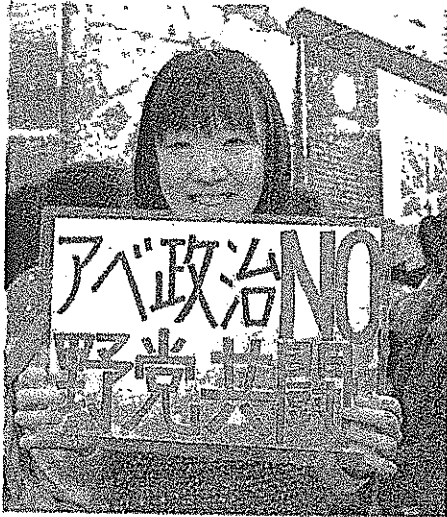 アベ政治NO
野党共闘